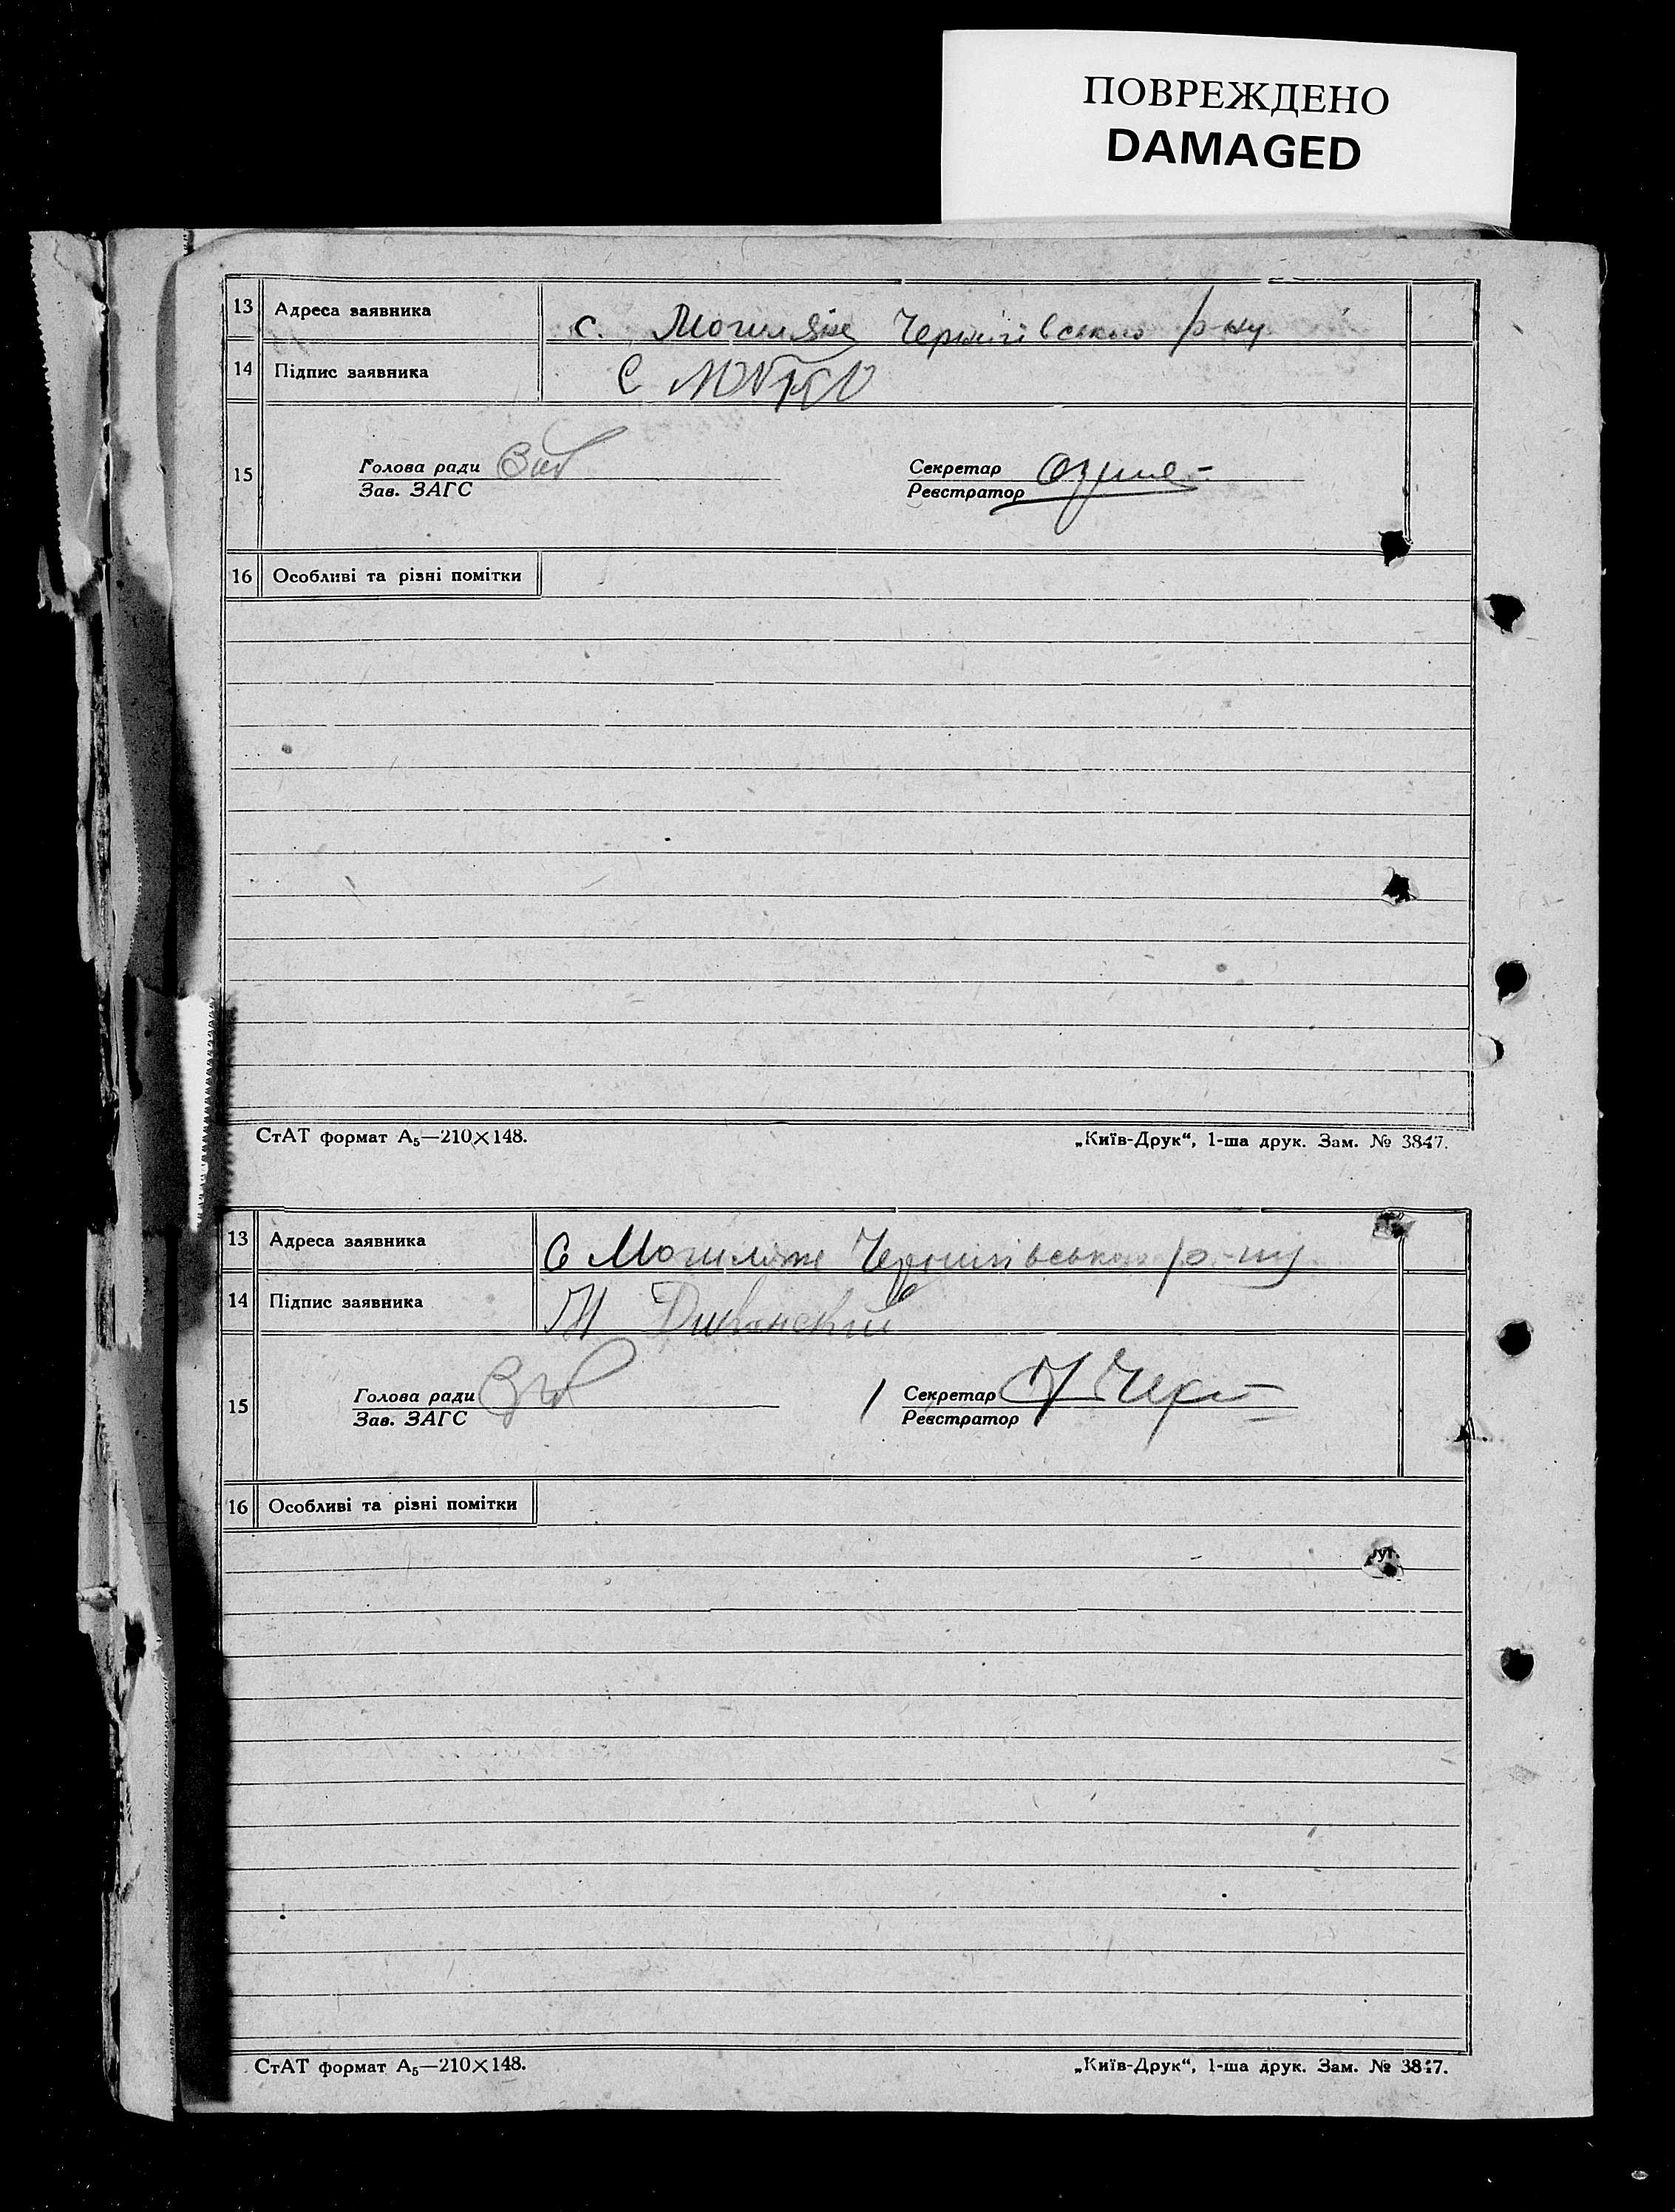 ПОВРЕЖДЕНО
DAMAGED
13 Адреса заявника с. Чернігівського р-ну
14 Підпис заявника С
15 Голова ради Секретар
Зав. ЗАГС Реєстратор
16 Особливі та різні помітки
СтАТ формат А5—210×148. „Київ-Друк“, 1-ша друк. Зам. № 3847.
13 Адреса заявника С Чернігівського р-ну
14 Підпис заявника
15 Голова ради Секретар
Зав. ЗАГС Реєстратор
16 Особливі та різні помітки
СтАТ формат А5—210×148. „Київ-Друк“, 1-ша друк. Зам. № 3847.